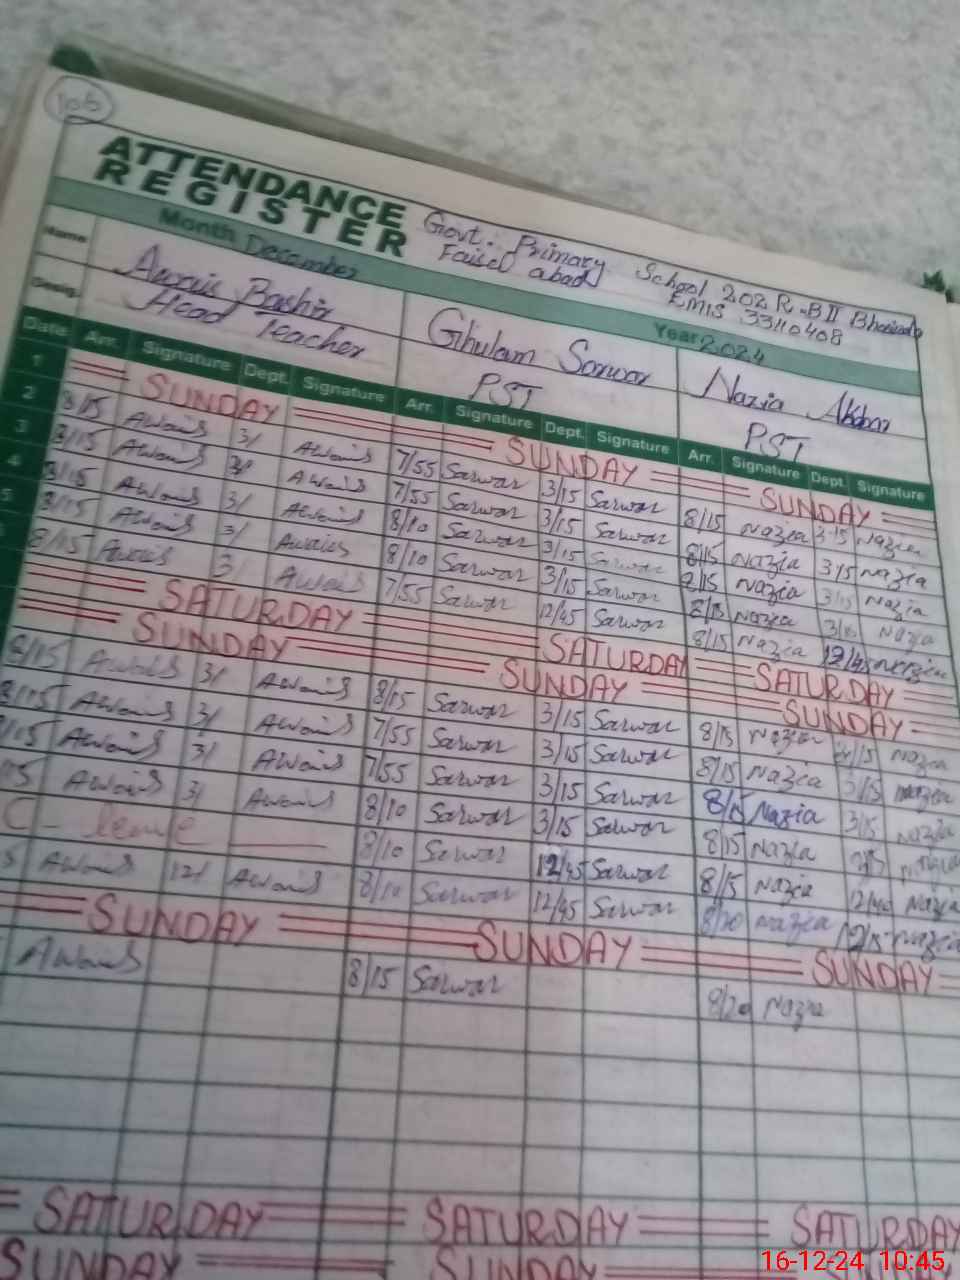 106
ATTENDANCE REGISTER
Govt. Primary School 202 R.B II
Faisal abad EMIS 33110408
Month December Year 2024
Name Awais Bashir Ghulam Sarwar Nazia Akbar
Desig. Head Teacher PST PST
Date Arr. Signature Dept. Signature Arr. Signature Dept. Signature Arr. Signature Dept. Signature
1 SUNDAY SUNDAY SUNDAY
2 8/15 Awais 3/ Awais 7/55 Sarwar 3/15 Sarwar 8/15 Nazia 3/15 Nazia
3 8/15 Awais 3/ Awais 7/55 Sarwar 3/15 Sarwar 8/15 Nazia 3/15 Nazia
4 8/15 Awais 3/ Awais 8/10 Sarwar 3/15 Sarwar 8/15 Nazia 3/15 Nazia
5 8/15 Awais 3/ Awais 8/10 Sarwar 3/15 Sarwar 8/15 Nazia Nazia
8/15 Awais 3/ Awais 7/55 Sarwar 12/45 Sarwar 8/15 Nazia 12/45 Nazia
SATURDAY SATURDAY SATURDAY
SUNDAY SUNDAY SUNDAY
8/15 Awais 3/ Awais 8/15 Sarwar 3/15 Sarwar 8/15 Nazia Nazia
8/15 Awais 3/ Awais 7/55 Sarwar 3/15 Sarwar 8/15 Nazia 3/15 Nazia
Awais 3/ Awais 7/55 Sarwar 3/15 Sarwar 8/15 Nazia 3/15 Nazia
Awais 3/ Awais 8/10 Sarwar 3/15 Sarwar 8/15 Nazia Nazia
C - leave 8/10 Sarwar 12/45 Sarwar 8/15 Nazia 12/40 Nazia
Awais 12/ Awais 8/10 Sarwar 12/45 Sarwar 8/20 Nazia Nazia
SUNDAY SUNDAY SUNDAY
Awais 8/15 Sarwar 8/20 Nazia
SATURDAY SATURDAY SATURDAY
SUNDAY SUNDAY
16-12-24 10:45